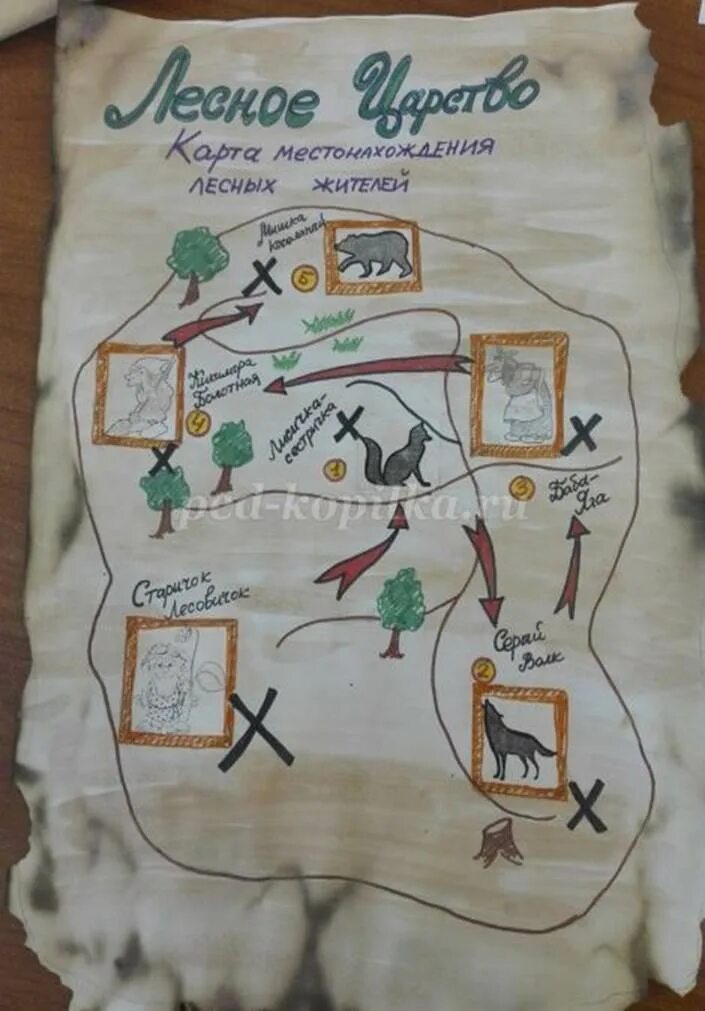 Лесное Царство
Карта местонахождения
лесных жителей
Мишка
косолапый
5
Кикимора
Болотная
4
Лисичка-
сестричка
1
3
Баба-
Яга
ped-kopilka.ru
Старичок
Лесовичок
Серый
Волк
2